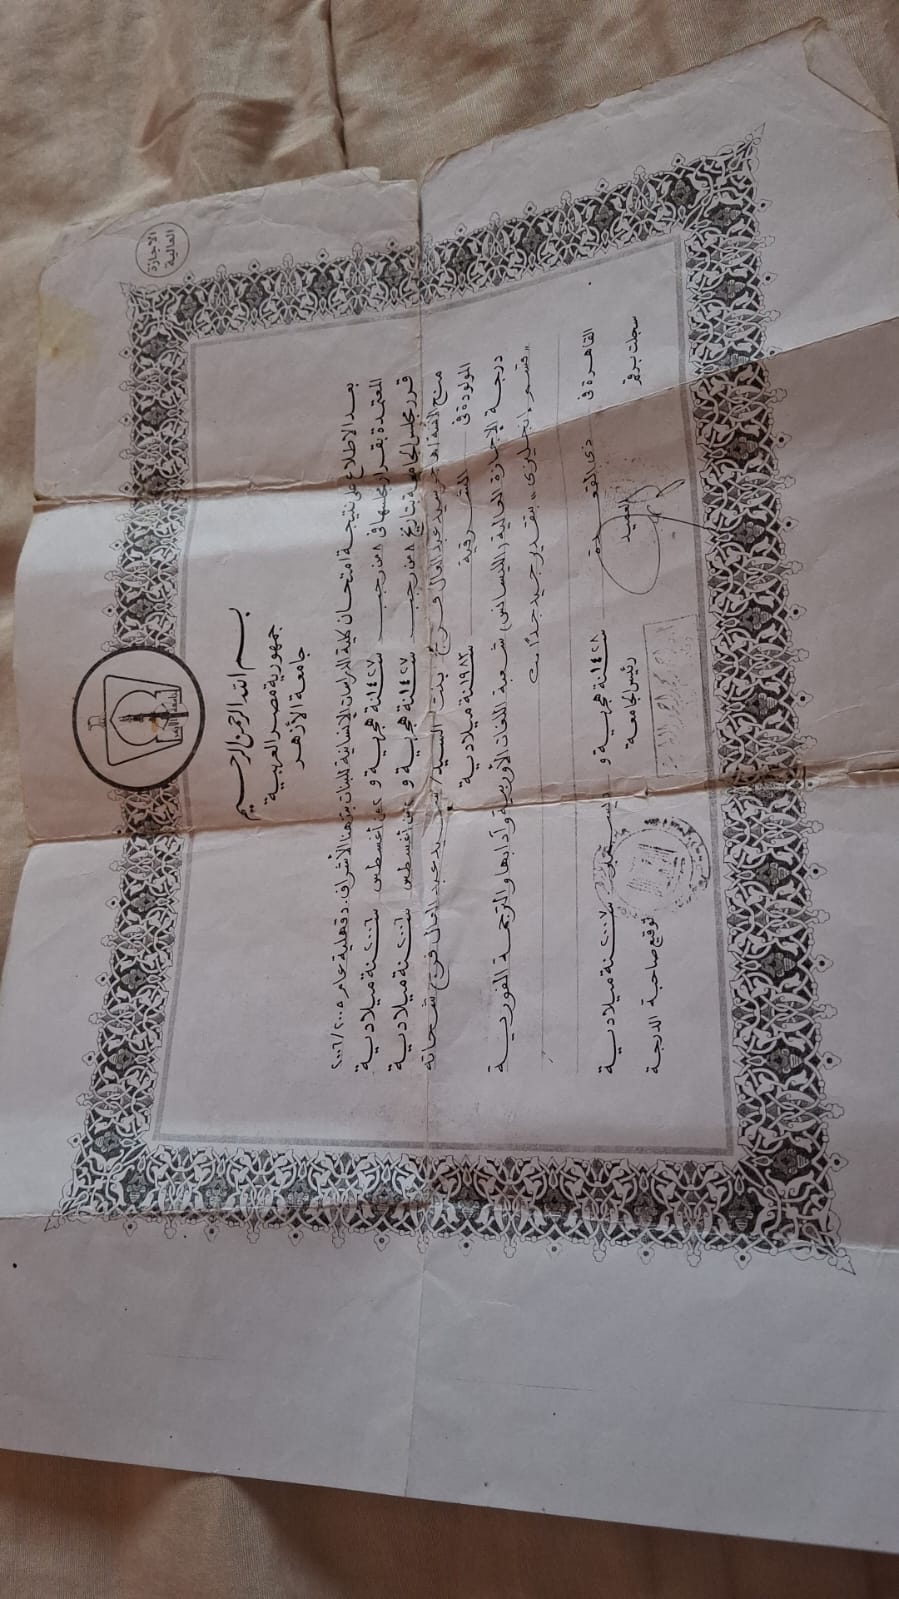 الإجازة
العالية
بسم الله الرحمن الرحيم
جمهورية مصر العربية
جامعة الأزهر
بعد الاطلاع على نتيجة امتحان كلية الدراسات الإنسانية للبنات بتفهنا الأشراف. دقهلية عام ٢٠٠٥/ ٢٠٠٦
المعتمدة بقرار مجلسها فى ٨ من رجب سنة ١٤٢٧ هجرية و ٢ من أغسطس سنة ٢٠٠٦ ميلادية
قرر مجلس الجامعة بتاريخ ٨ من رجب سنة ١٤٢٧ هجرية و ٢ من أغسطس سنة ٢٠٠٦ ميلادية
منح سيد عبد العال فرج بنت السيد/ سيد عبد العال فرج شحاته
المولودة فى الشرقية سنة ١٩٨٣ ميلادية
درجة الإجازة العالية (الليسانس) شعبة اللغات الأوربية وآدابها والترجمة الفورية
"قسم إنجليزى" بتقدير جيد جدًا
القاهرة فى ذى القعدة سنة ١٤٢٨ هجرية و ديسمبر سنة ٢٠٠٧ ميلادية
سجلت برقم العميد رئيس الجامعة توقيع صاحبة الدرجة